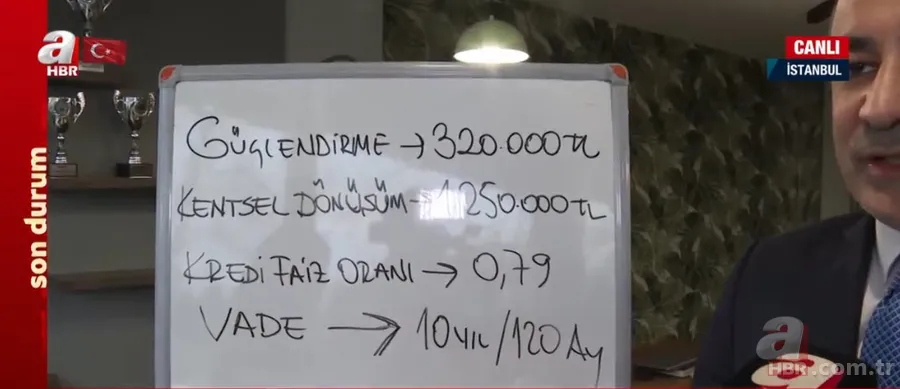 a
HBR
CANLI
İSTANBUL
son durum
GÜÇLENDİRME → 320.000TL
KENTSEL DÖNÜŞÜM → 1.250.000TL
KREDİ FAİZ ORANI → 0,79
VADE → 10 YIL/120 Ay
a
HBR.com.tr